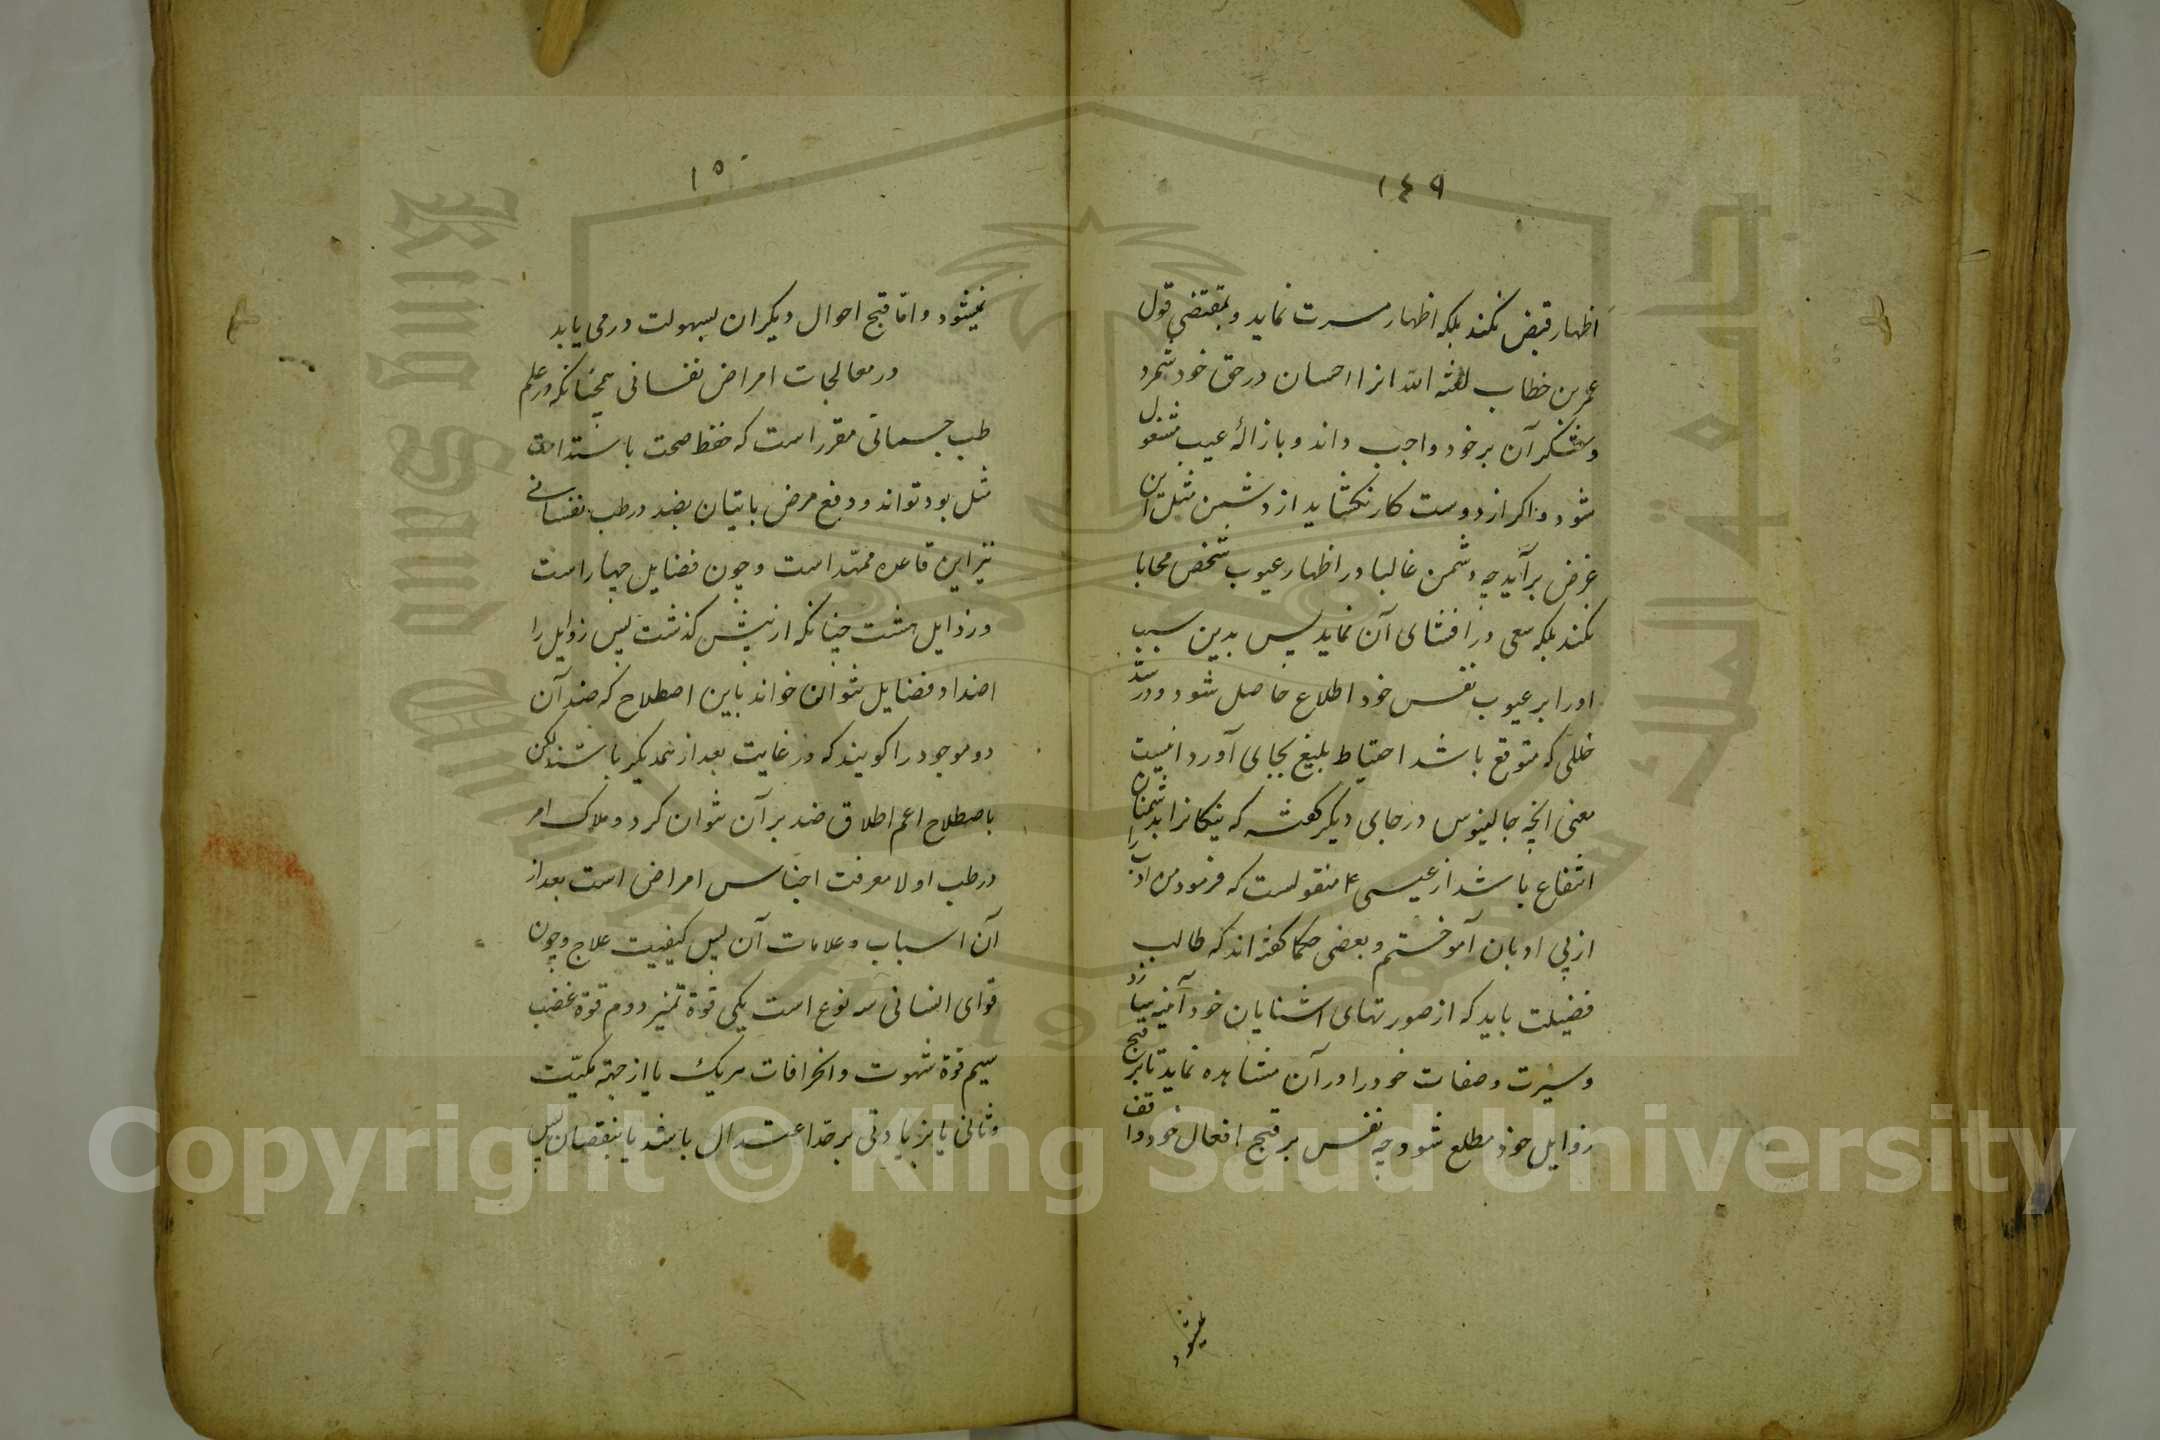 ١٤٩
اظهار قبض نکند بلکه اظهار مسرت نماید و بمقتضی قول
عمر بن خطاب لعنه الله انرا احسان در حق خود شمرد
و شکر آن بر خود واجب داند و بازالهٔ عیب مشغول
شود و اکر از دوست کار نکشاید از دشمن مثل این
غرض برآید چه دشمن غالبا در اظهار عیوب شخص محابا
نکند بلکه سعی در افشای آن نماید پس بدین سبب
او را بر عیوب نفس خود اطلاع حاصل شود و در سد
خللی که متوقع باشد احتیاط بلیغ بجای آورد اینست
معنی انچه جالینوس در جای دیکر کفته که نیکانرا بدشمنان
انتفاع باشد از عیسی ۴ منقولست که فرمود من ادب را
از بی ادبان آموختم و بعضی حکما کفته اند که طالب
فضیلت باید که از صورتهای اشنایان خود آینه سازد
و سیرت و صفات خود را در آن مشاهده نماید تا بر قبح
رذایل خود مطلع شود چه نفس بر قبح افعال خود واقف
نمیشود
١٥٠
نمیشود و اما قبح احوال دیکران بسهولت در می یابد
در معالجات امراض نفسانی همچنانکه در علم
طب جسمانی مقرر است که حفظ صحت باستدامت
مثل بود تواند و دفع مرض باتیان بضد در طب نفسانی
نیز این قاعده ممهد است و چون فضایل چهار است
و رذایل هشت چنانکه از پیش کذشت پس رذایل را
اضداد فضایل نتوان خواند باین اصطلاح که ضد آن
دو موجود را کویند که در غایت بعد از همدیکر باشند لکن
باصطلاح اعم اطلاق ضد بر آن توان کرد و ملاک امر
در طب اولا معرفت اجناس امراض است بعد از
آن اسباب و علامات آن پس کیفیت علاج و چون
قوای انسانی سه نوع است یکی قوة تمیز دوم قوة غضب
سیم قوة شهوت و انحرافات هر یک یا از جهة کمیت
و ثانی یا بزیادتی بر حد اعتدال باشد یا بنقصان پس
Copyright © King Saud University